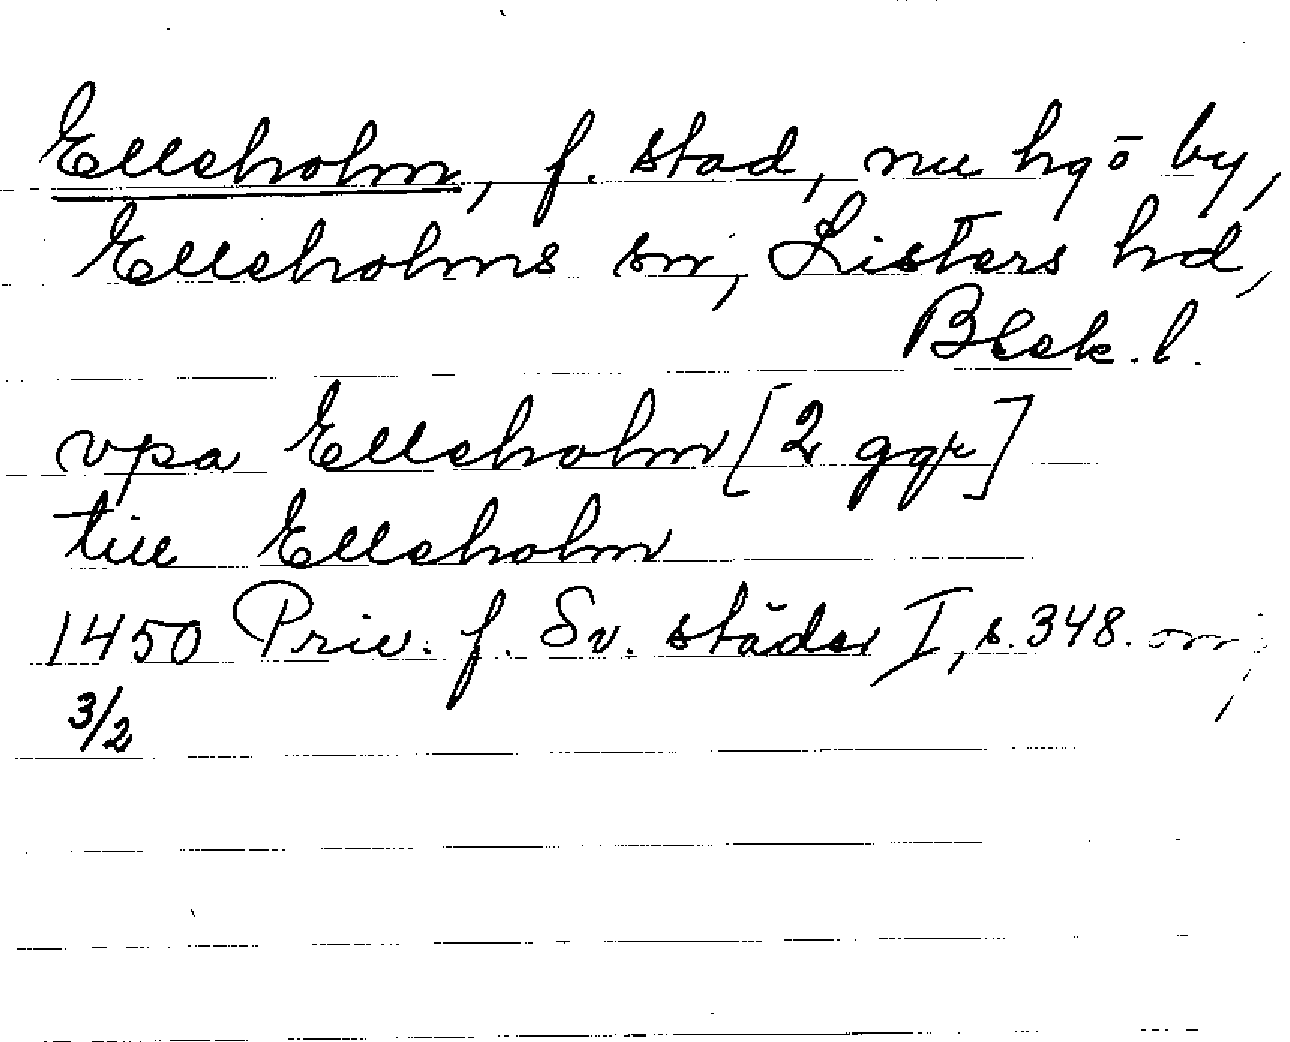 Elleholm, f. stad, nu hgö by,
Elleholms sn, Listers hd,
Blek. l.
vpa Elleholm [2 ggr]
till Elleholm
1450 Priv. f. Sv. städer I, s. 348.
3/2